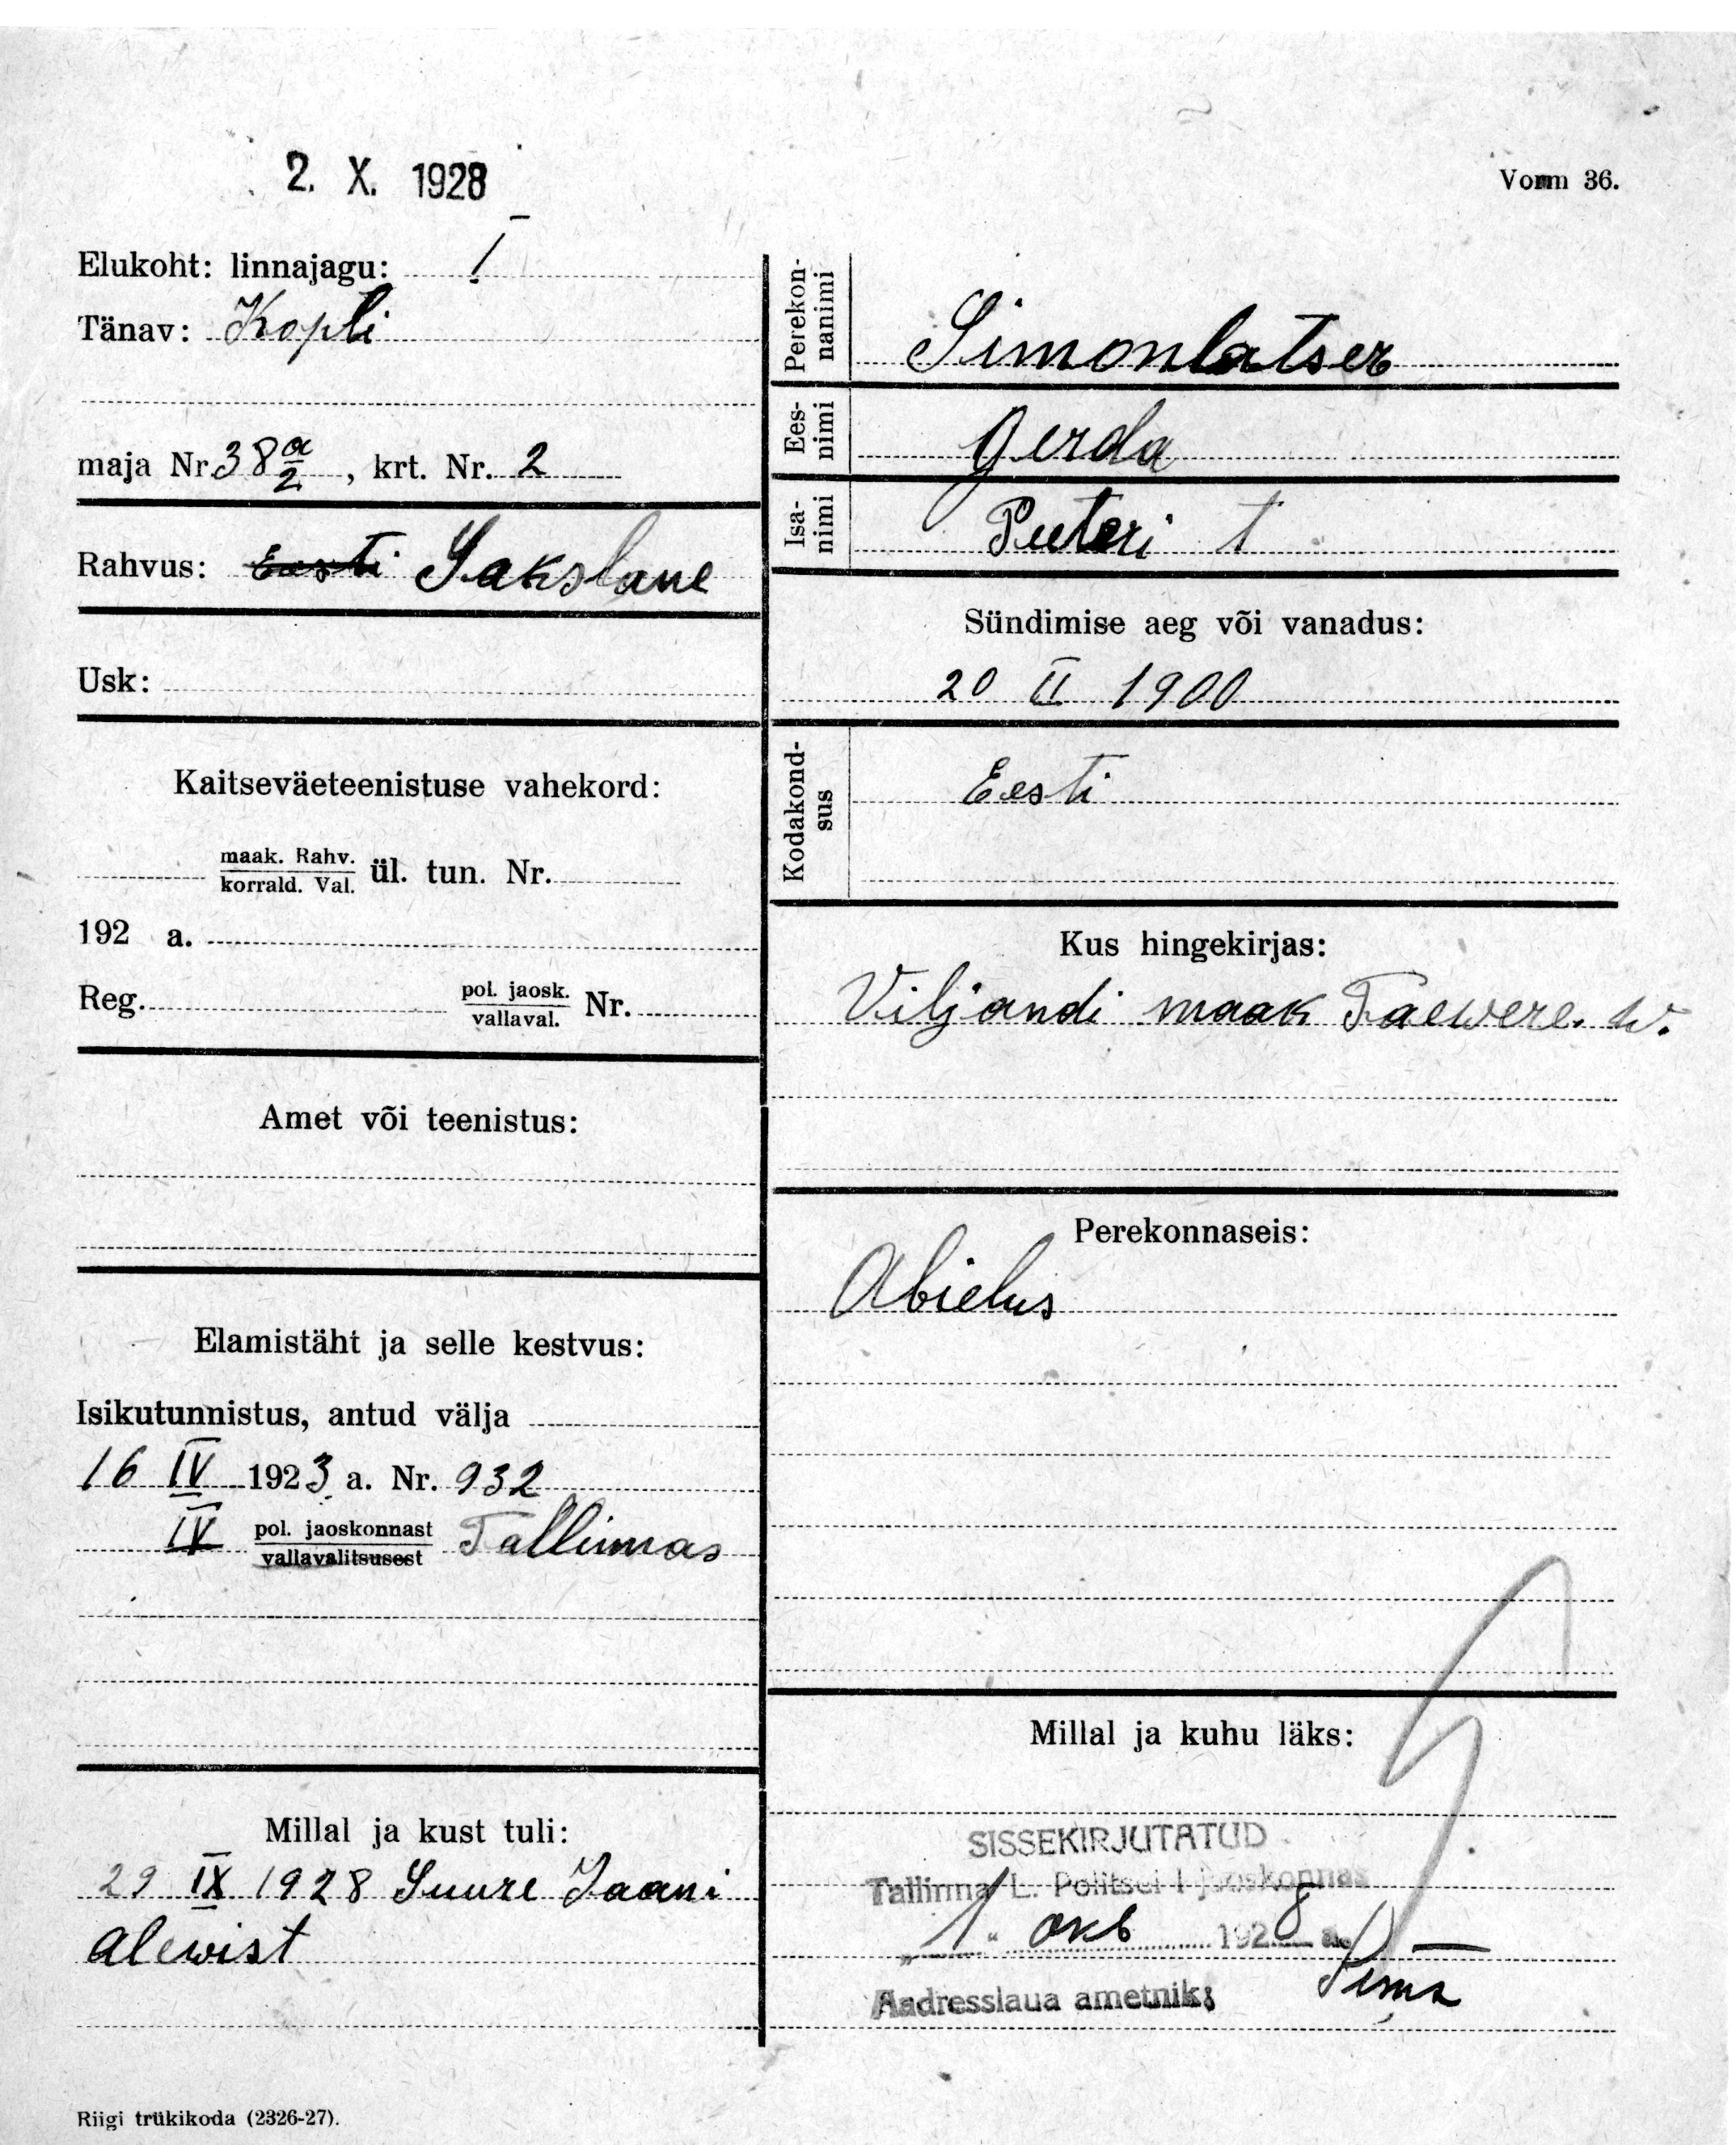 2. X. 1928
Vorm 36.
Elukoht: linnajagu: I
Tänav: Kopli
maja Nr. 38 a/2, krt. Nr. 2
Rahvus: Eesti Sakslane
Usk:
Kaitseväeteenistuse vahekord:
maak. Rahv.
korrald. Val. ül. tun. Nr.
192 a.
Reg. pol. jaosk.
vallaval. Nr.
Amet või teenistus:
Elamistäht ja selle kestvus:
Isikutunnistus, antud välja
16 IV 1923 a. Nr. 932
IV pol. jaoskonnast Tallinnas
vallavalitsusest
Millal ja kust tuli:
29 IX 1928 Suure Jaani
alewist
Perekon-
nanimi Simonlatser
Ees-
nimi Gerda
Isa-
nimi Peeteri t
Sündimise aeg või vanadus:
20 II 1900
Kodakond-
sus Eesti
Kus hingekirjas:
Viljandi maak Taewere. w.
Perekonnaseis:
Abielus
Millal ja kuhu läks:
SISSEKIRJUTATUD
Tallinna L. Politsei I jaoskonnas
"1" okt 1928 a.
Aadresslaua ametnik:
Riigi trükikoda (2326-27).